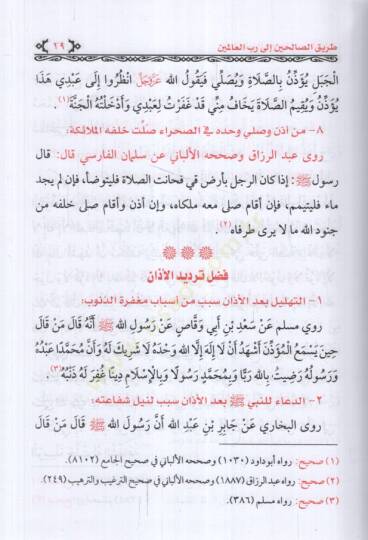 طريق الصالحين إلى رب العالمين ٢٩
الْجَبَلِ يُؤَذِّنُ بِالصَّلَاةِ وَيُصَلِّي فَيَقُولُ اللَّه عَزَّوَجَلَّ انْظُرُوا إِلَى عَبْدِي هَذَا
يُؤَذِّنُ وَيُقِيمُ الصَّلَاةَ يَخَافُ مِنِّي قَدْ غَفَرْتُ لِعَبْدِي وَأَدْخَلْتُهُ الْجَنَّةَ(١)
٨- من أذن وصلي وحده في الصحراء صلت خلفه الملائكة:
روى عبد الرزاق وصححه الألباني عن سلمان الفارسي قال: قال
رسول ﷺ: إذا كان الرجل بأرض قي فحانت الصلاة فليتوضأ، فإن لم يجد
ماء فليتيمم، فإن أقام صل معه ملكاه، وإن أذن وأقام صل خلفه من
جنود الله ما لا يرى طرفاه(٢).
فضل ترديد الأذان
١- التهليل بعد الأذان سبب من أسباب مغفرة الذنوب:
روي مسلم عَنْ سَعْدِ بْنِ أَبِي وَقَّاصٍ عَنْ رَسُولِ اللَّهِ ﷺ أَنَّهُ قَالَ مَنْ قَالَ
حِينَ يَسْمَعُ الْمُؤَذِّنَ أَشْهَدُ أَنْ لَا إِلَهَ إِلَّا اللَّهُ وَحْدَهُ لَا شَرِيكَ لَهُ وَأَنَّ مُحَمَّدًا عَبْدُهُ
وَرَسُولُهُ رَضِيتُ بِاللَّهِ رَبًّا وَبِمُحَمَّدٍ رَسُولًا وَبِالْإِسْلَامِ دِينًا غُفِرَ لَهُ ذَنْبُهُ(٣)
٢- الدعاء للنبي ﷺ بعد الأذان سبب لنيل شفاعته:
روى البخاري عَنْ جَابِرِ بْنِ عَبْدِ اللَّهِ أَنَّ رَسُولَ اللَّهِ ﷺ قَالَ مَنْ قَالَ
(١) صحيح: رواه أبو داود (١٠٣٠) وصححه الألباني في صحيح الجامع (٨١٠٢).
(٢) صحيح: رواه عبد الرزاق (١٨٨٧) وصححه الألباني في صحيح الترغيب والترهيب (٢٤٩).
(٣) صحيح: رواه مسلم (٣٨٦).